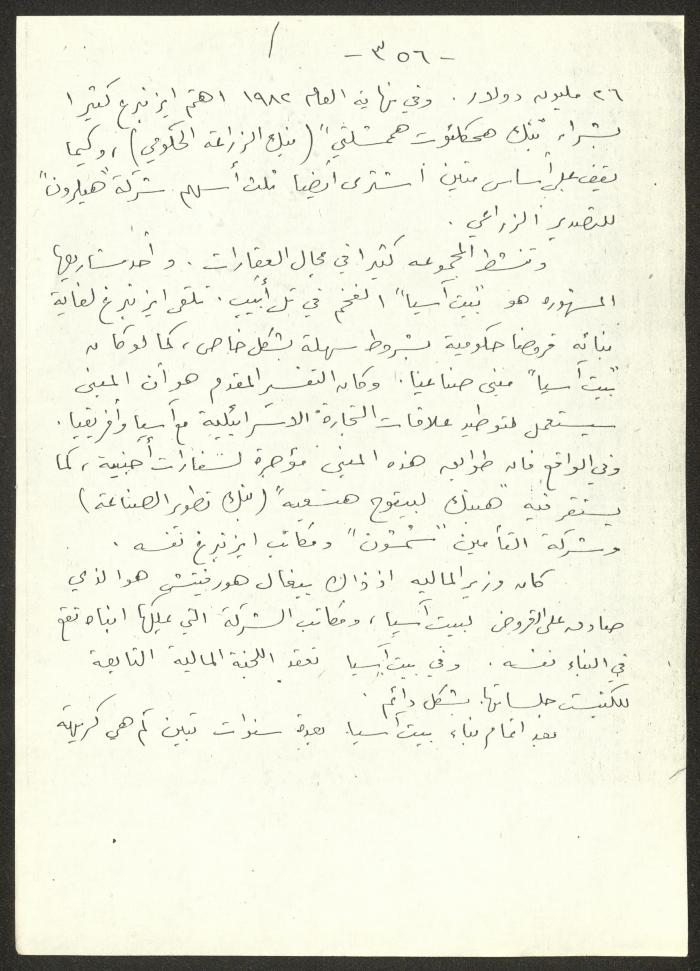 - ٣٥٦ -
٢٦ مليون دولار. وفي نهاية العام ١٩٨٢ اهتم ايزنبرغ كثيرا
بشراء "بنك هحكلئوت هممشلتي" (بنك الزراعة الحكومي)، وكيما
يقف على أساس متين اشترى أيضا ثلث أسهم شركة "هيلرون"
للتصدير الزراعي.
وتنشط المجموعه كثيرا في مجال العقارات. وأحد مشاريعها
المشهوره هو "بيت آسيا" الفخم في تل أبيب. تلقى ايزنبرغ لغاية
بنائه قروضا حكومية بشروط سهلة بشكل خاص، كما لو كان
"بيت آسيا" مبنى صناعيا. وكان التفسير المقدم هو أن المبنى
سيستعمل لتوطيد علاقات التجارة الاسرائيلية مع آسيا وأفريقيا.
وفي الواقع فان طوابق هذه المبنى مؤجرة لسفارات أجنبية، كما
يستقر فيه "هبنك لبيتوح هتعسيه" (بنك تطوير الصناعة)
وشركة التأمين "شمشون" ومكاتب ايزنبرغ نفسه.
كان وزير المالية اذ ذاك ييغال هورفيتش هو الذي
صادق على القروض لبيت آسيا، ومكاتب الشركة التي يملكها ابناه تقع
في البناء نفسه. وفي بيت آسيا تعقد اللجنة المالية التابعة
للكنيست جلساتها بشكل دائم.
بعد اتمام بناء بيت آسيا بعدة سنوات تبين كم هي كريهة